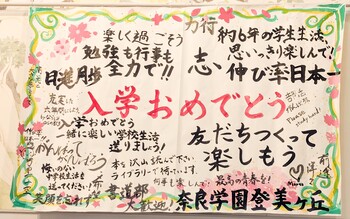 楽しく過ごそう
勉強も行事も
全力で!!
日進月歩
力行
志
約6年の学生生活
思いっきり楽しんで!
伸び率日本一
入学おめでとう
Please
study hard!
入学おめでとう
一緒に楽しい学校生活
送りましょう!
友だちつくって
楽しもう
本を沢山読んで下さい
ライブラリーで待っています。
書道部
大歓迎!
最高の青春を!
笑顔を忘れずに
奈良学園登美ヶ丘
前途
洋々